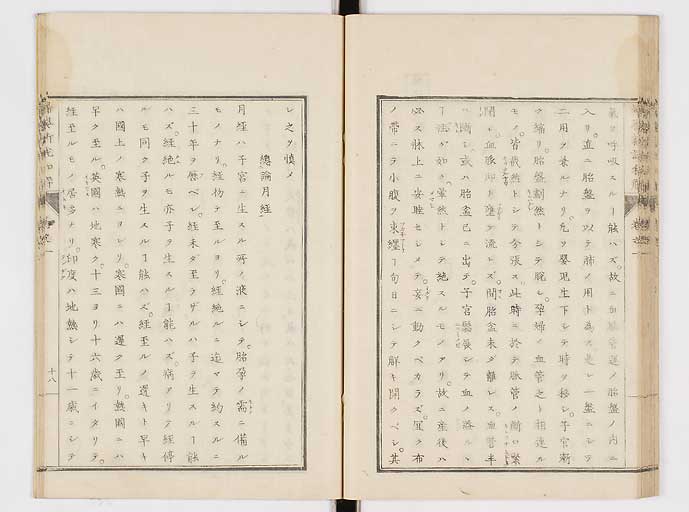 氣ヲ呼吸スルヿ能ハズ。故ニ血脈管運ノ胎盤ノ内ニ
入リ。直ニ胎盤ヲ以テ肺ノ用ト為ス是レ一盤ニシテ
二用ヲ兼ルナリ。凡ソ嬰兒生下シテ時ヲ移シ。子宮漸
ク縮リ。胎盤割然トシテ脱シ。孕婦ノ血管之ト相連ル
モノ。皆截然トシテ分張ス。此時ニ於テ脉管ノ斷口緊
閉シ。血脈即チ塞テ流レズ。間胎盆未ダ離レス。血管半
ハ斷シ。或ハ胎盆已ニ出テ。子宮鬆張シテ血ノ落ル
ヿ注グ如ク。暈然トシテ絶スルモノアリ。故ニ產後ハ
必ス牀上ニ安睡セシメテ。妄ニ動クベカラズ。宜ク布
ノ帶ニテ小腹ヲ束纏ヿ旬日ニシテ解キ開クベシ。其
レ之ヲ慎メ
總論月經
月經ハ子宮ニ生スル所ノ液ニシテ。胎孕ノ需ニ備ル
モノナリ。經物テ至ルヨリ。經絶ルニ迄マテ約スルニ
三十年ヲ曆ベシ。經未ダ至ラザルハ子ヲ生スルヿ能
ハズ。經絶ルモ亦子ヲ生スルヿ能ハズ。病アリテ經停
ルモ同ク子ヲ生スルヿ能ハズ。經至ルノ遲キト早キ
ハ國土ノ寒熱ニヨレリ。寒國ニハ遲ク至リ。熱國ニハ
早ク至ル。英國ハ地寒ク。十三ヨリ十六歳ニイタリテ。
經至ルモノ居多ナリ。印度ハ地熱シテ十一歳ニシテ
十八